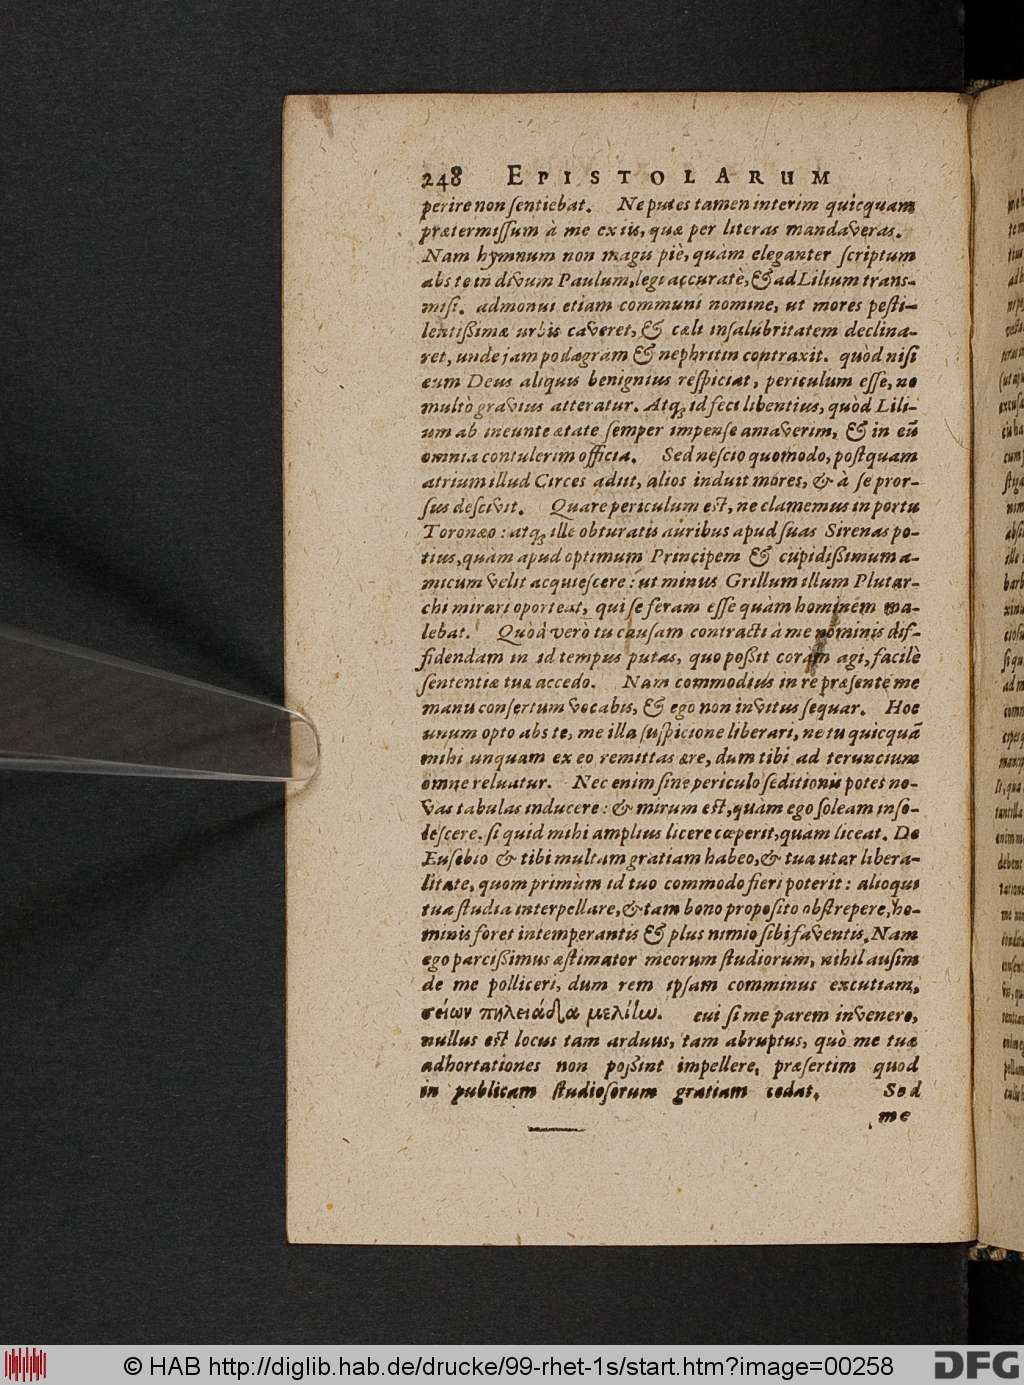 248 EPISTOLARUM
perire non ſentiebat. Ne putes tamen interim quicquam
prætermiſſum à me ex iis, quæ per literas mandaveras.
Nam hymnum non magis piè, quàm eleganter ſcriptum
abs te in divum Paulum, legi accuratè, & ad Lilium trans-
miſi. admonui etiam communi nomine, ut mores peſti-
lentißimæ urbis caveret, & cœli inſalubritatem declina-
ret, unde jam podagram & nephritin contraxit. quòd niſi
eum Deus aliquis benignius reſpiciat, periculum eſſe, ne
multò gravius atteratur. Atq; id feci libentius, quòd Lili-
um ab ineunte ætate ſemper impenſe amaverim, & in eũ
omnia contulerim officia. Sed neſcio quomodo, poſtquam
atrium illud Circes adiit, alios induit mores, & à ſe pror-
ſus deſcivit. Quare periculum eſt, ne clamemus in portu
Toronæo: atq; ille obturatis auribus apud ſuas Sirenas po-
tius, quàm apud optimum Principem & cupidißimum a-
micum velit acquieſcere: ut minus Grillum illum Plutar-
chi mirari oporteat, qui ſe feram eſſe quàm hominem ma-
lebat. Quòd verò tu cauſam contracti à me nominis dif-
fidendam in id tempus putas, quo poßit coràm agi, facilè
ſententiæ tuæ accedo. Nam commodius in re præſente me
manu conſertum vocabis, & ego non invitus ſequar. Hoc
unum opto abs te, me illa ſuſpicione liberari, ne tu quicquã
mihi unquam ex eo remittas ære, dum tibi ad teruncium
omne reluatur. Nec enim ſine periculo ſeditionis potes no-
vas tabulas inducere: & mirum eſt, quàm ego ſoleam inſo-
leſcere, ſi quid mihi amplius licere cœperit, quam liceat. De
Euſebio & tibi multam gratiam habeo, & tua utar libera-
litate, quom primùm id tuo commodo fieri poterit: alioqui
tua ſtudia interpellare, & tam bono propoſito obſtrepere, ho-
minis foret intemperantis & plus nimio ſibi faventis. Nam
ego parcißimus æſtimator meorum ſtudiorum, nihil auſim
de me polliceri, dum rem ipſam comminus excutiam,
cui ſi me parem invenero,
nullus eſt locus tam arduus, tam abruptus, quò me tuæ
adhortationes non poßint impellere, præſertim quod
in publicam ſtudioſorum gratiam cedat. Sed
me
© HAB http://diglib.hab.de/drucke/99-rhet-1s/start.htm?image=00258
DFG